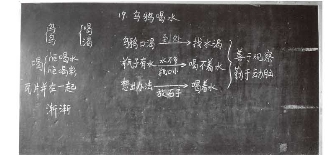 19.乌鸦喝水
乌 喝
鸟 渴
喝 吃喝水
瓦片并在一起
渐渐
乌鸦口渴 到处 找水喝
瓶子有水 水不多 瓶口小 喝不着水
想出办法 放石子 喝着水
善于观察
勤于动脑